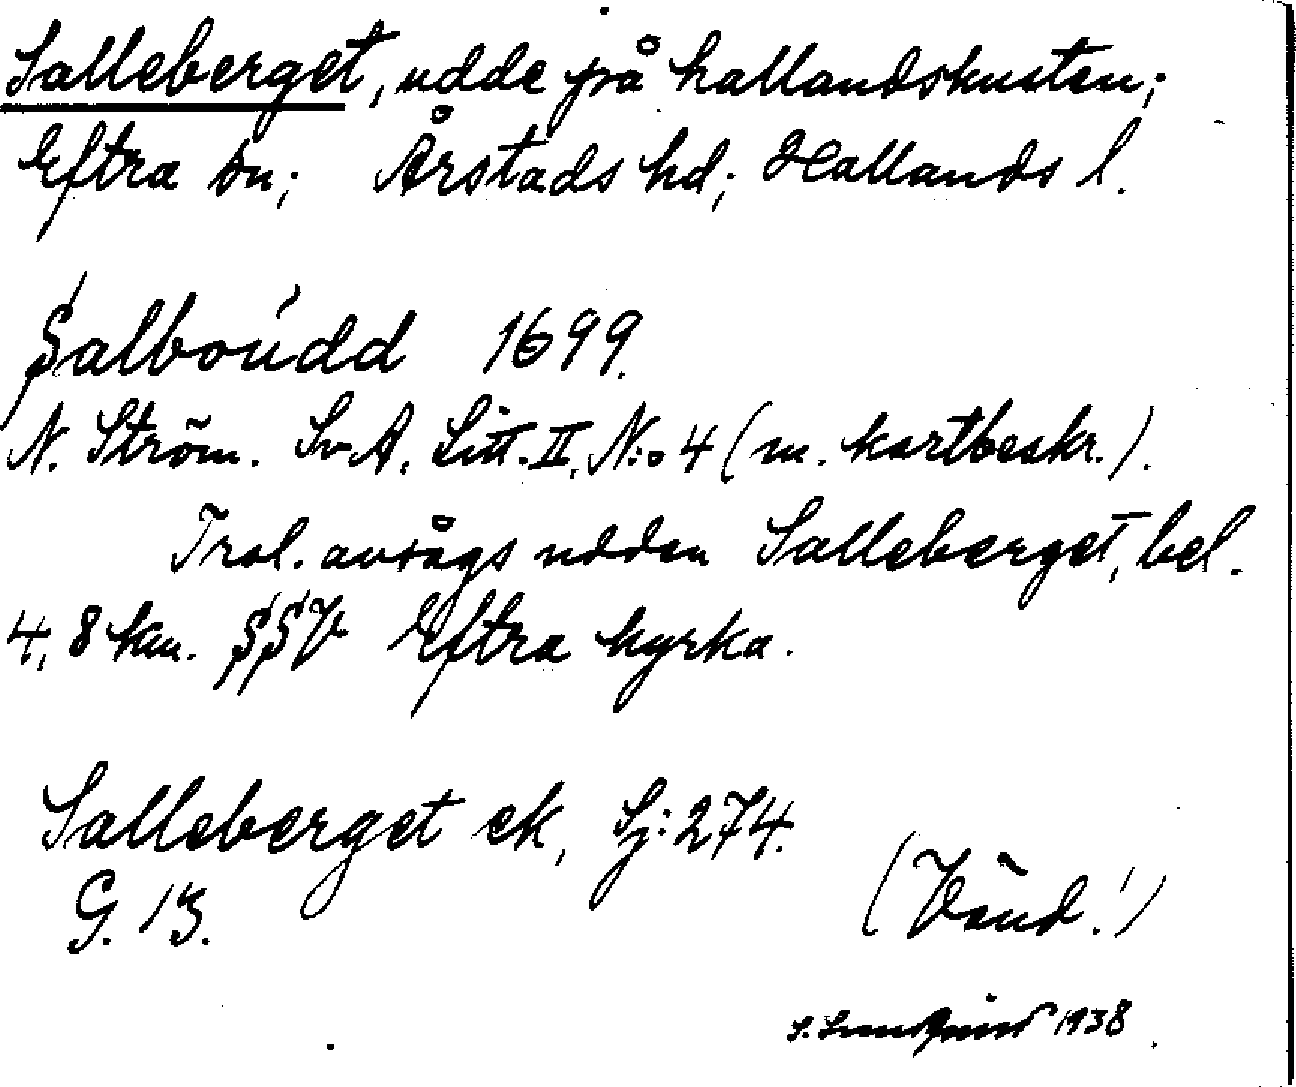 Salleberget, udde på hallandskusten;
Eftra sn; Årstads hd; Hallands l.
Salboúdd 1699.
N. Ström. SvA. Litt. II, N:o 4 (m. kartbeskr.).
Trol. avsågs udden Salleberget, bel.
4,8 km. SSV Eftra kyrka.
Salleberget ek, Sj: 274.
G. 13.
(Vänd!)
S. Lundquist 1938